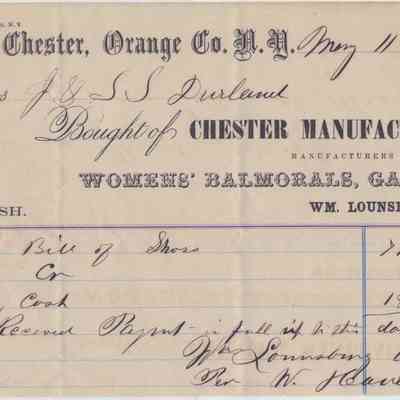 N.Y.
Chester, Orange Co. N.Y. May 11
s J & S S Durland
Bought of CHESTER MANUFAC
MANUFACTURERS
WOMENS' BALMORALS, GA
SH. WM. LOUNSB
Bill of Shoes
Cr
Cash
Received Paymt in full up to this da
Wm Lounsbury
Per W.